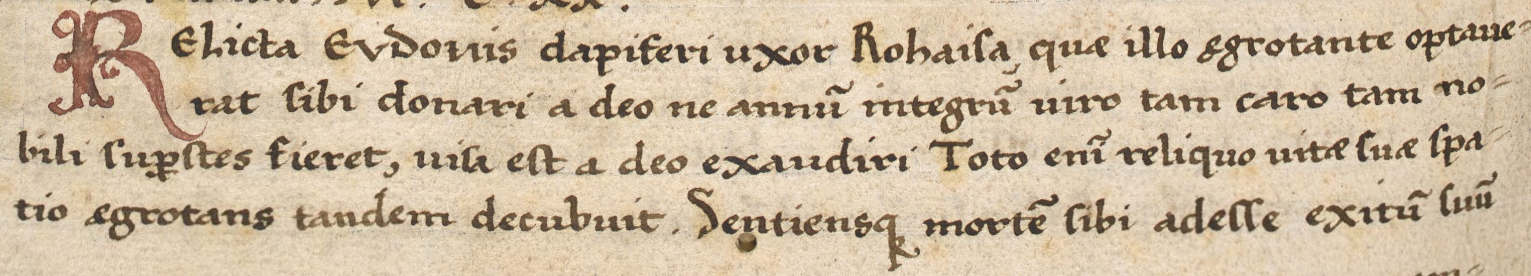 RElicta Eudonis dapiferi uxor Rohaisa, quæ illo ægrotante optaue-
rat sibi donari a deo ne annū integrū uiro tam caro tam no-
bili suꝑstes fieret, uisa est a deo exaudiri Toto eni̅ reliquo uitæ suæ spa-
tio ægrotans tandem decubuit. Sentiensq; mortē sibi adesse exitū suū